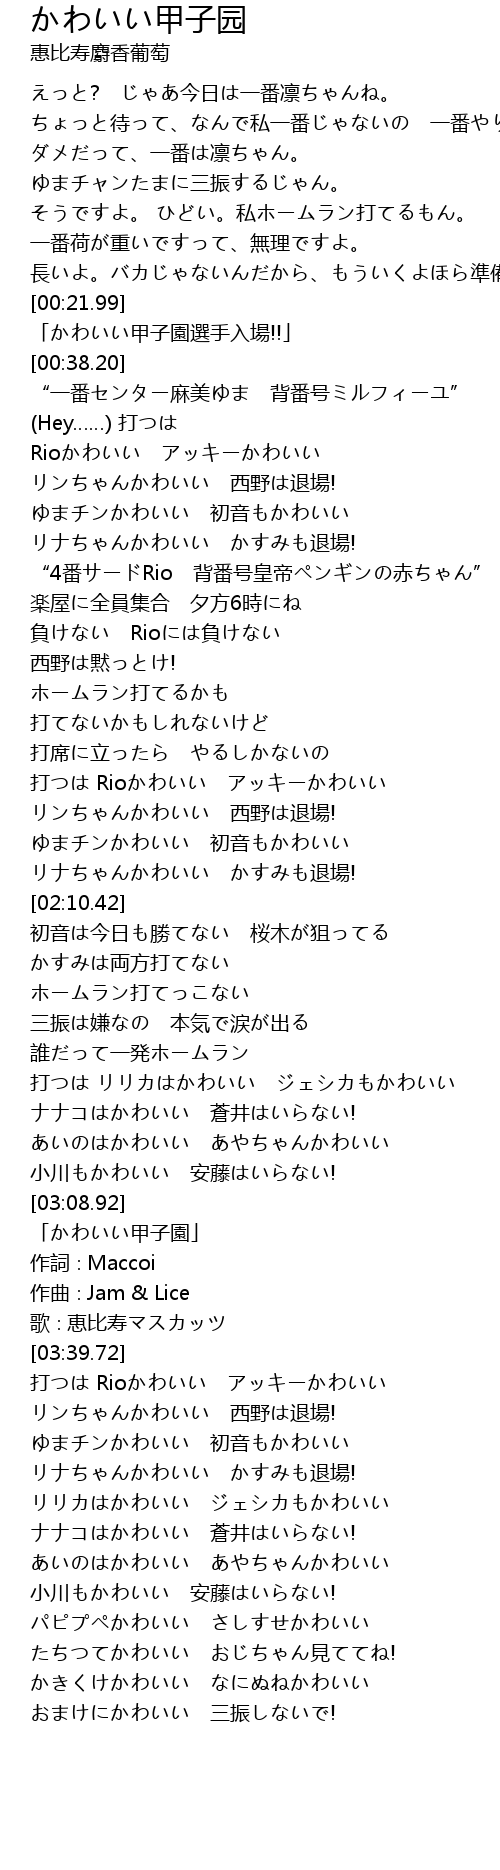 かわいい甲子园
惠比寿麝香葡萄
えっと?　じゃあ今日は一番凛ちゃんね。
ちょっと待って、なんで私一番じゃないの　一番やり
ダメだって、一番は凛ちゃん。
ゆまチャンたまに三振するじゃん。
そうですよ。 ひどい。私ホームラン打てるもん。
一番荷が重いですって、無理ですよ。
長いよ。バカじゃないんだから、もういくよほら準備
[00:21.99]
「かわいい甲子園選手入場!!」
[00:38.20]
“一番センター麻美ゆま　背番号ミルフィーユ”
(Hey......) 打つは
Rioかわいい　アッキーかわいい
リンちゃんかわいい　西野は退場!
ゆまチンかわいい　初音もかわいい
リナちゃんかわいい　かすみも退場!
“4番サードRio　背番号皇帝ペンギンの赤ちゃん”
楽屋に全員集合　夕方6時にね
負けない　Rioには負けない
西野は黙っとけ!
ホームラン打てるかも
打てないかもしれないけど
打席に立ったら　やるしかないの
打つは Rioかわいい　アッキーかわいい
リンちゃんかわいい　西野は退場!
ゆまチンかわいい　初音もかわいい
リナちゃんかわいい　かすみも退場!
[02:10.42]
初音は今日も勝てない　桜木が狙ってる
かすみは両方打てない
ホームラン打てっこない
三振は嫌なの　本気で涙が出る
誰だって一発ホームラン
打つは リリカはかわいい　ジェシカもかわいい
ナナコはかわいい　蒼井はいらない!
あいのはかわいい　あやちゃんかわいい
小川もかわいい　安藤はいらない!
[03:08.92]
「かわいい甲子園」
作詞 : Maccoi
作曲 : Jam & Lice
歌 : 恵比寿マスカッツ
[03:39.72]
打つは Rioかわいい　アッキーかわいい
リンちゃんかわいい　西野は退場!
ゆまチンかわいい　初音もかわいい
リナちゃんかわいい　かすみも退場!
リリカはかわいい　ジェシカもかわいい
ナナコはかわいい　蒼井はいらない!
あいのはかわいい　あやちゃんかわいい
小川もかわいい　安藤はいらない!
パピプペかわいい　さしすせかわいい
たちつてかわいい　おじちゃん見ててね!
かきくけかわいい　なにぬねかわいい
おまけにかわいい　三振しないで!